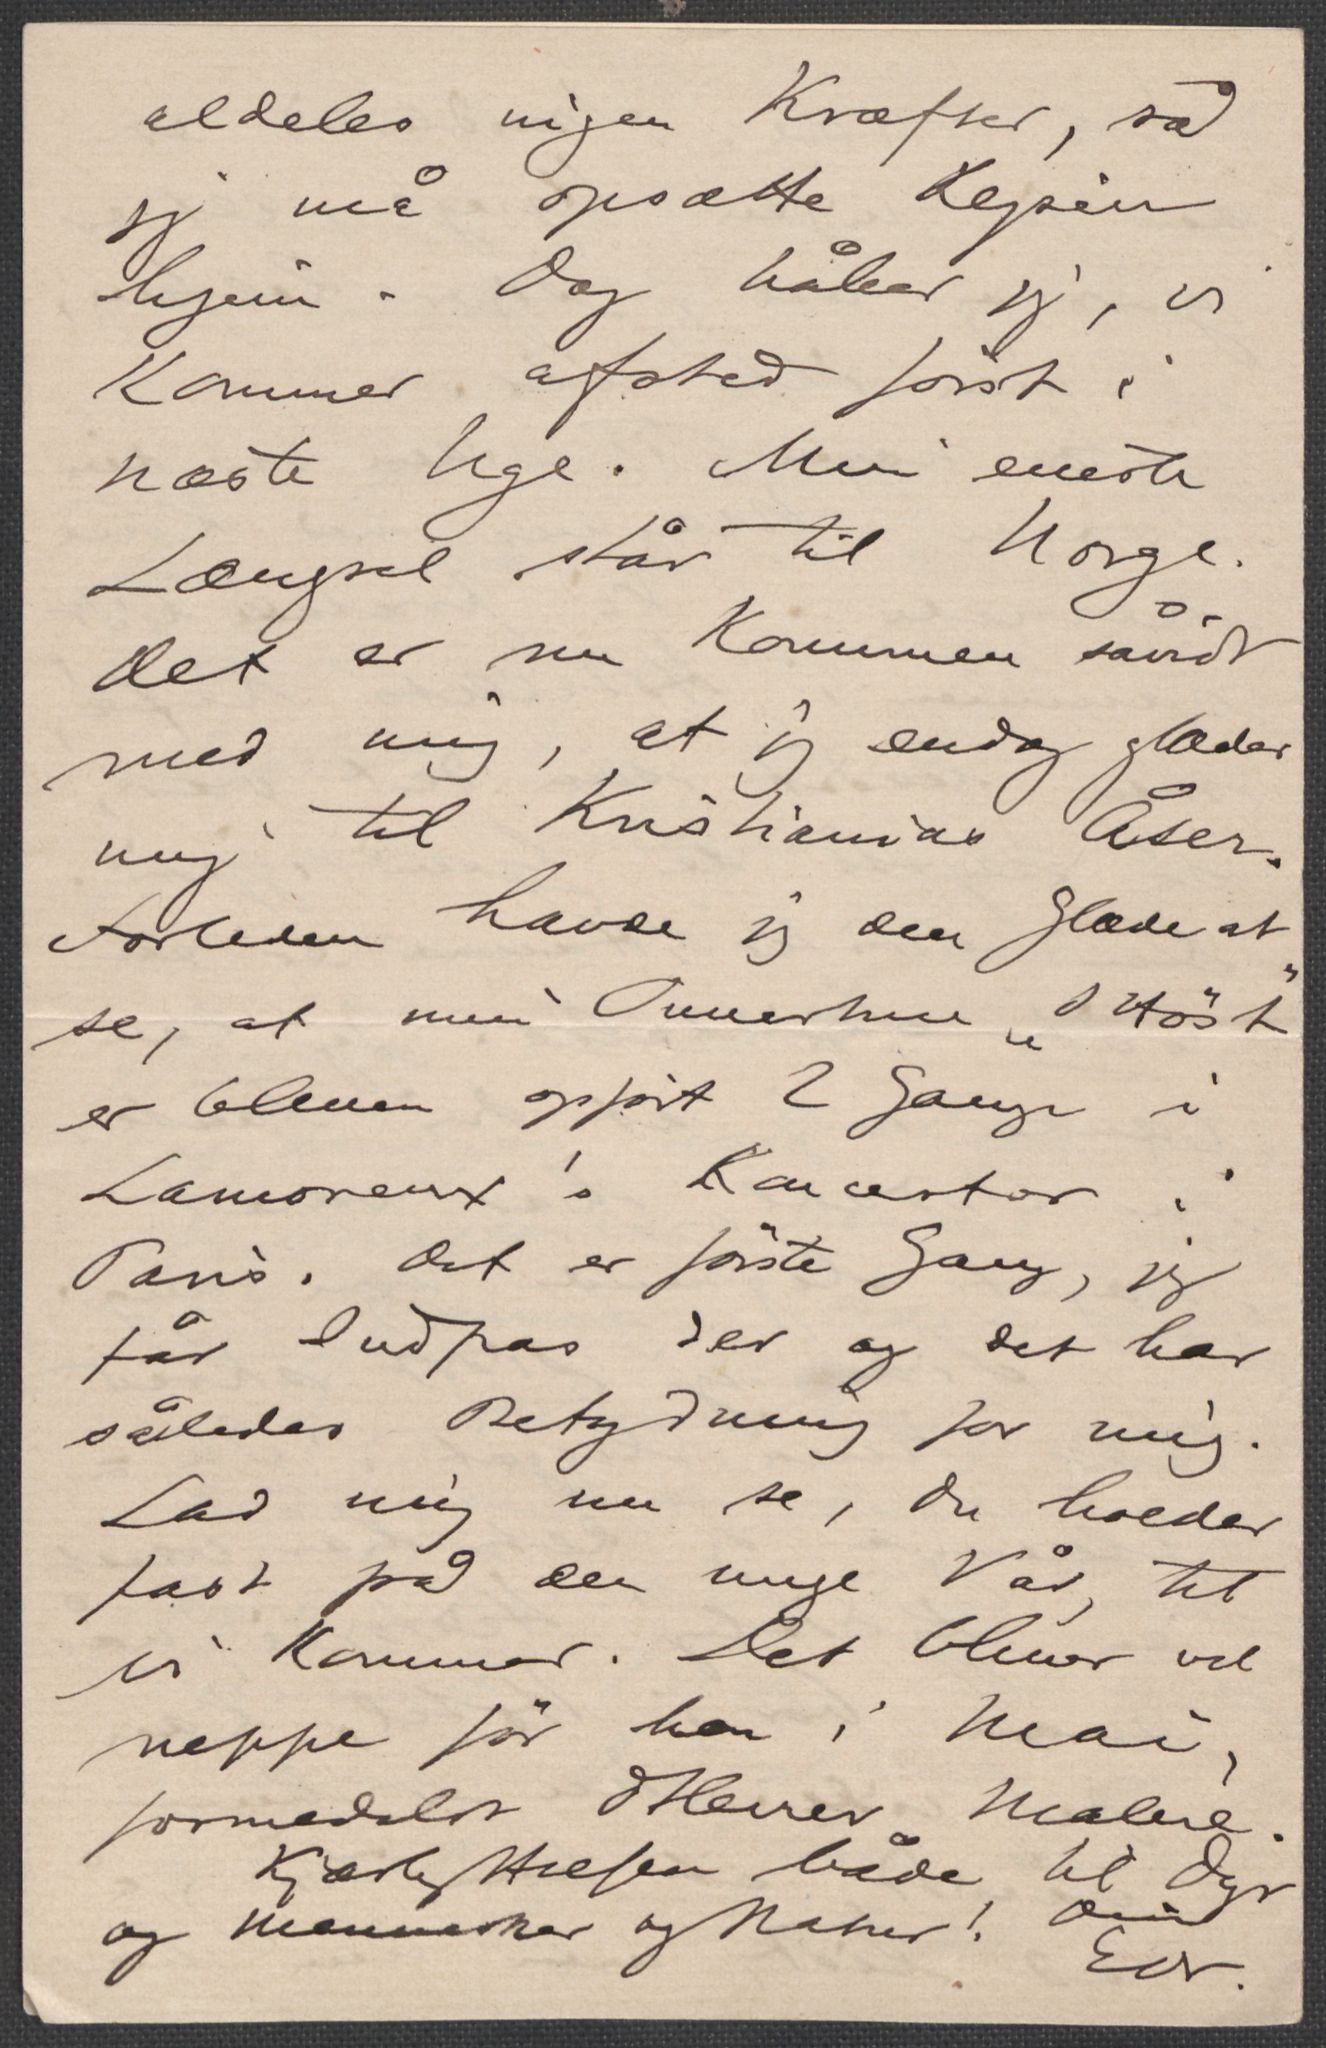 aldeles ingen Kræfter, så
jeg må opsætte Rejsen
hjem. Dog håber jeg, vi
kommer afsted först i
næste Uge. Min eneste
Længsel står til Norge.
Det er nu kommen såvidt
med mig, at jeg endog glæder
mig til Kristianias Åser.
Forleden havde jeg den Glæde at
se, at min Ouverture „I Höst"
er bleven opfört 2 Gange i
Lamoreux's Koncerter i
Paris. Det er förste Gang, jeg
får Indpas der og det har
således Betydning for mig.
Lad mig nu se, du holder
fast på den unge Vår, til
vi kommer. Det bliver vel
neppe för hen i Mai,
formedelst
Kjærlig Hilsen både til Dyr
og Mennesker og Natur! Din
Edv.